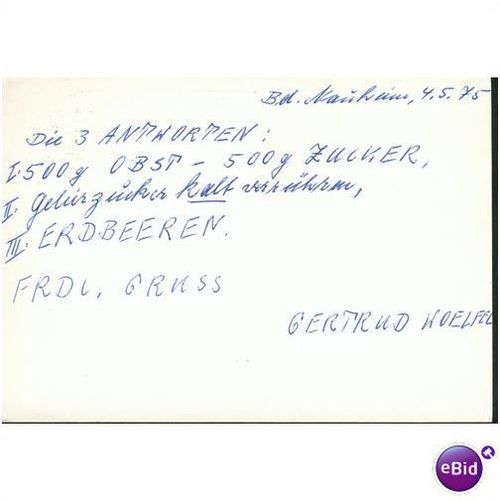 Bd. Nauheim, 4.5.75
Die 3 ANTWORTEN:
I. 500g OBST – 500g ZUCKER,
II. Gelierzucker kalt verrühren,
III. ERDBEEREN.
FRDL. GRUSS
GERTRUD WOELFEL
eBid